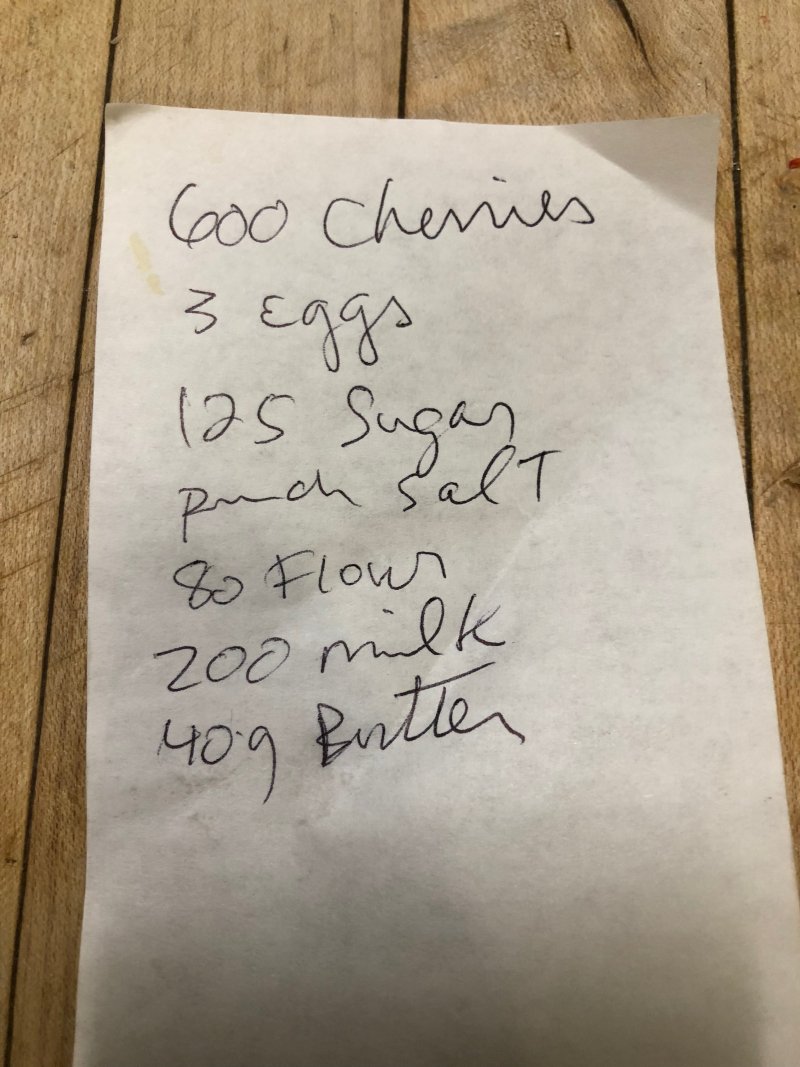 600 Cherries
3 Eggs
125 Sugar
pinch salt
80 Flour
200 milk
40g Butter